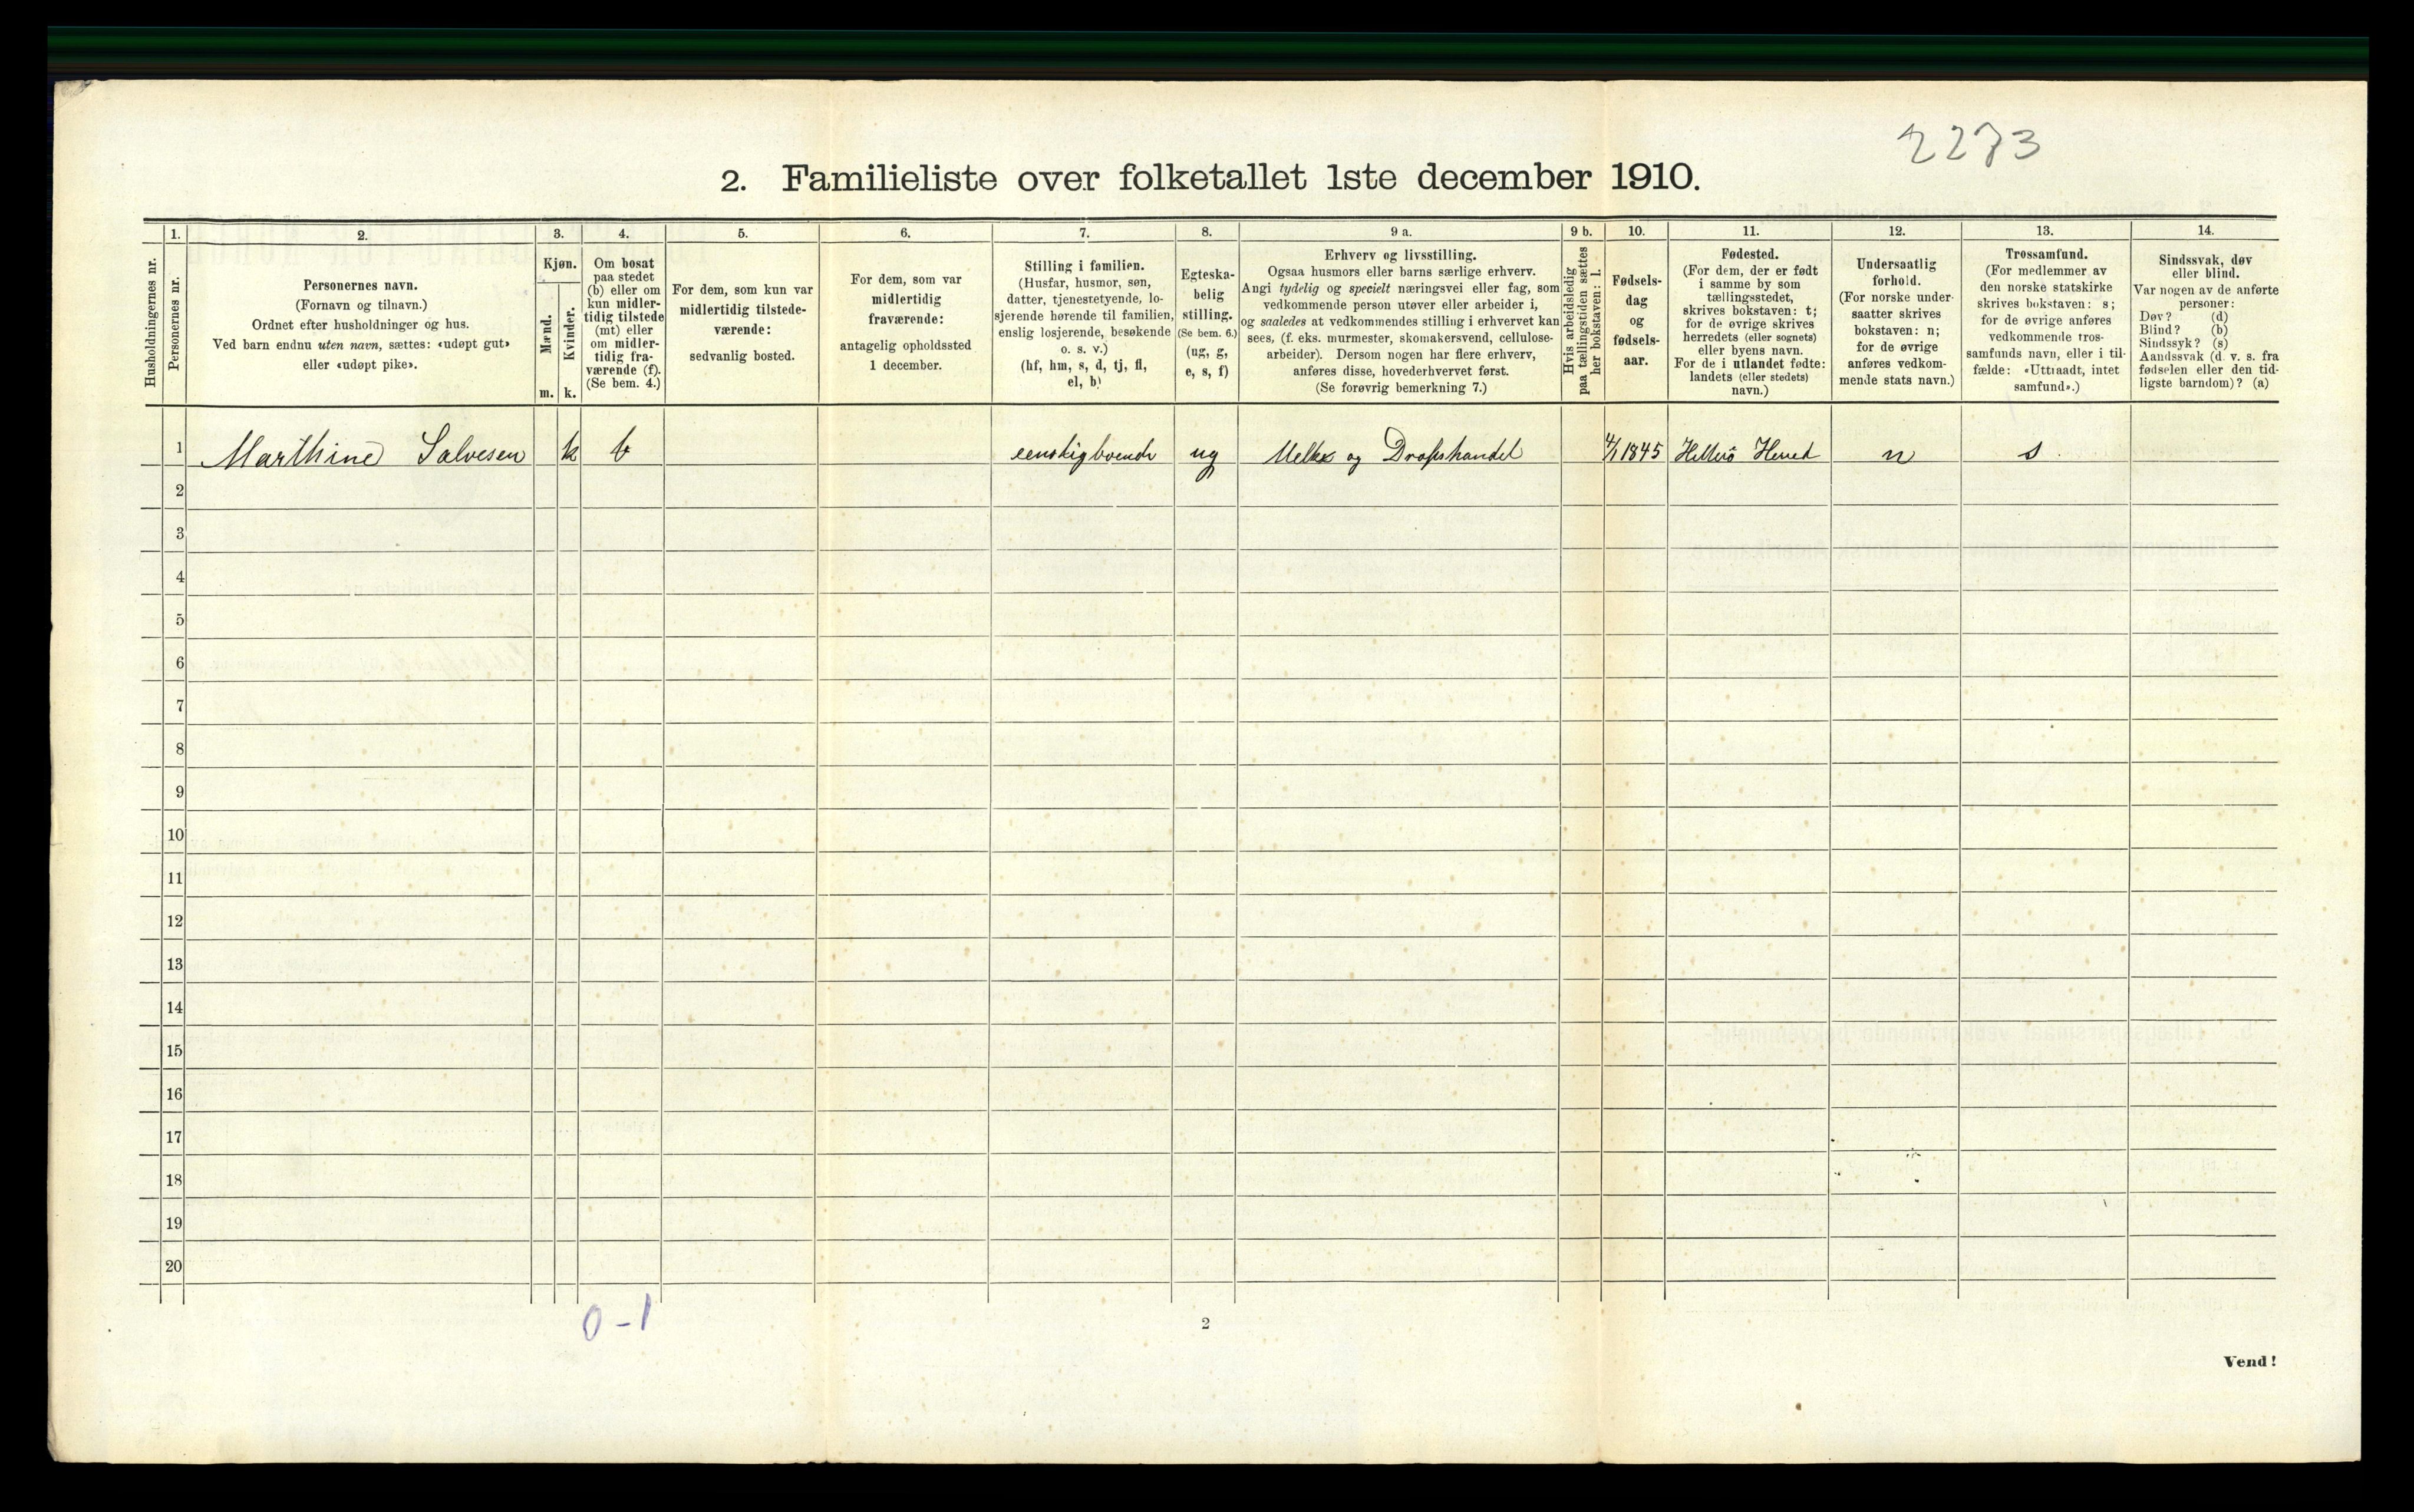 2273
2. Familieliste over folketallet 1ste december 1910.
Husholdningernes nr.
1.
Personernes nr.
2.
Personernes navn.
(Fornavn og tilnavn.)
Ordnet efter husholdninger og hus.
Ved barn endnu uten navn, sættes: «udøpt gut»
eller «udøpt pike».
3.
Kjøn.
Mænd.
m.
Kvinder.
k.
4.
Om bosat
paa stedet
(b) eller om
kun midler-
tidig tilstede
(mt) eller
om midler-
tidig fra-
værende (f).
(Se bem. 4.)
5.
For dem, som kun var
midlertidig tilstede-
værende:
sedvanlig bosted.
6.
For dem, som var
midlertidig
fraværende:
antagelig opholdssted
1 december.
7.
Stilling i familien.
(Husfar, husmor, søn,
datter, tjenestetyende, lo-
sjerende hørende til familien,
enslig losjerende, besøkende
o. s. v.)
(hf, hm, s, d, tj, fl,
el, b)
8.
Egteska-
belig
stilling.
(Se bem. 6.)
(ug, g,
e, s, f)
9 a.
Erhverv og livsstilling.
Ogsaa husmors eller barns særlige erhverv.
Angi tydelig og specielt næringsvei eller fag, som
vedkommende person utøver eller arbeider i,
og saaledes at vedkommendes stilling i erhvervet kan
sees, (f. eks. murmester, skomakersvend, cellulose-
arbeider). Dersom nogen har flere erhverv,
anføres disse, hovederhvervet først.
(Se forøvrig bemerkning 7.)
9 b.
Hvis arbeidsledig
paa tællingstiden sættes
her bokstaven: l.
10.
Fødsels-
dag
og
fødsels-
aar.
11.
Fødested.
(For dem, der er født
i samme by som
tællingsstedet,
skrives bokstaven: t;
for de øvrige skrives
herredets (eller sognets)
eller byens navn.
For de i utlandet fødte:
landets (eller stedets)
navn.)
12.
Undersaatlig
forhold.
(For norske under-
saatter skrives
bokstaven: n;
for de øvrige
anføres vedkom-
mende stats navn.)
13.
Trossamfund.
(For medlemmer av
den norske statskirke
skrives bokstaven: s;
for de øvrige anføres
vedkommende tros-
samfunds navn, eller i til-
fælde: «Uttraadt, intet
samfund».)
14.
Sindssvak, døv
eller blind.
Var nogen av de anførte
personer:
Døv? (d)
Blind? (b)
Sindssyk? (s)
Aandssvak (d. v. s. fra
fødselen eller den tid-
ligste barndom)? (a)
1 Marthine Salvesen k b eenskigboende ug Melke og Dropshandel 4/1 1845 Hellesö Herred n s
2
3
4
5
6
7
8
9
10
11
12
13
14
15
16
17
18
19
20
0-1
2
Vend!